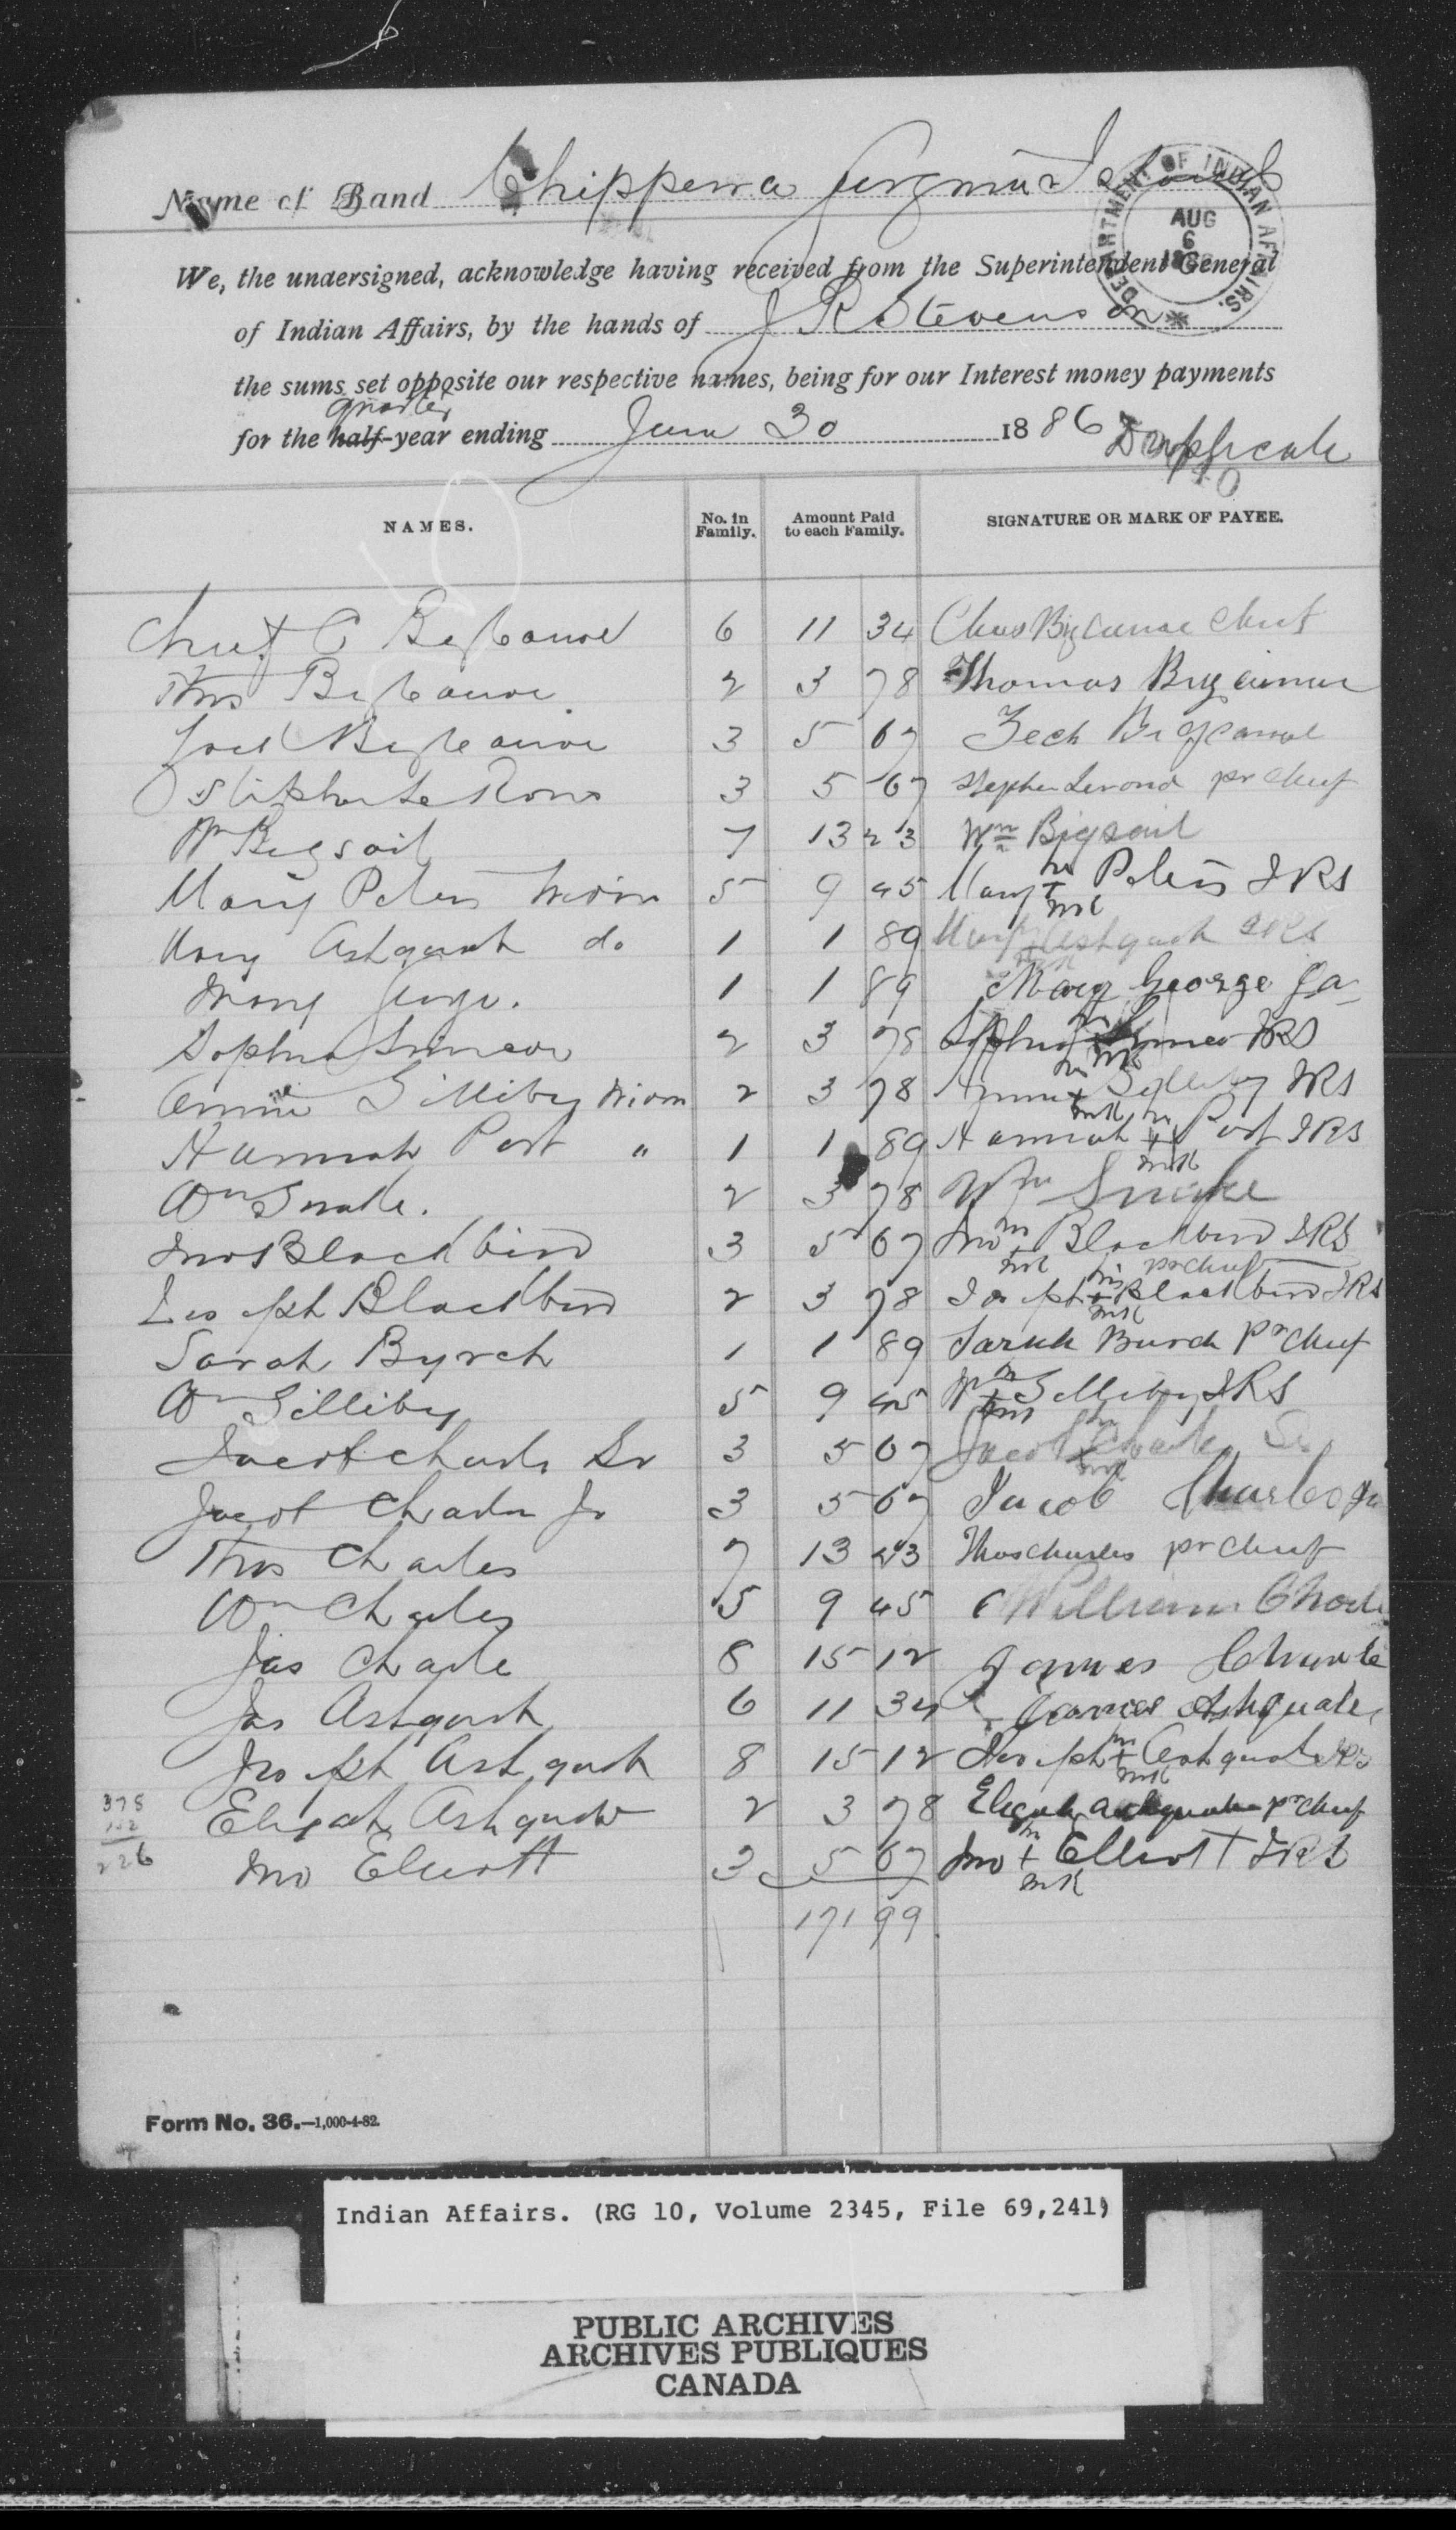 Name of Band Chippewa Georgina Island
DEPARTMENT OF INDIAN AFFAIRS.
AUG
6
We, the undersigned, acknowledge having received from the Superintendent General
of Indian Affairs, by the hands of J R Stevenson
the sums set opposite our respective names, being for our Interest money payments
quarter
for the half-year ending June 30 1886
Duplicate
NAMES. No. in Family. Amount Paid to each Family. SIGNATURE OR MARK OF PAYEE.
Chief C Bigcanoe 6 11 34 Chas Bigcanoe Chief
Thos Bigcanoe 2 3 78 Thomas Bigcanoe
Bigcanoe 3 5 67 Zech Bigcanoe
3 5 67 Stephen pr Chief
Wm Bigsail 7 13 23 Wm Bigsail
Mary Peters Widow 5 9 45 Mary + Peters JRS
Mary Ashquah do 1 1 89 Mary Ashquah JRS
Mary George. 1 1 89 Mary George
Sophia Simcoe 2 3 78 Sophia Simcoe JRS
Annie Gilliby Widow 2 3 78 Annie + Gilliby JRS
Hannah Port " 1 1 89 Hannah + Port JRS
Wm Snake. 2 3 78 Wm Snake
Jno Blackbird 3 5 67 Jno Blackbird JRS
pr Chief
Joseph Blackbird 2 3 78 Joseph + Blackbird JRS
Sarah Byrch 1 1 89 Sarah Burch pr Chief
Wm Gilliby 5 9 45 Wm + Gilliby JRS
Jacob Charles Sr 3 5 67 Jacob Charles Sr
Jacob Charles Jr 3 5 67 Jacob Charles Jr
Thos Charles 7 13 23 Thos Charles pr Chief
Wm Charles 5 9 45 William Charles
Jas Charle 8 15 12 James Charle
Jas Ashquah 6 11 34 James Ashquahe
Joseph Ashquah 8 15 12 Joseph + Ashquah JRS
Elijah Ashquah 2 3 78 Elijah Ashquah pr Chief
Jno Elliott 3 5 67 Jno + Elliott JRS
mk
171 99
Form No. 36.—1,000-4-82.
Indian Affairs. (RG 10, Volume 2345, File 69,241)
PUBLIC ARCHIVES
ARCHIVES PUBLIQUES
CANADA